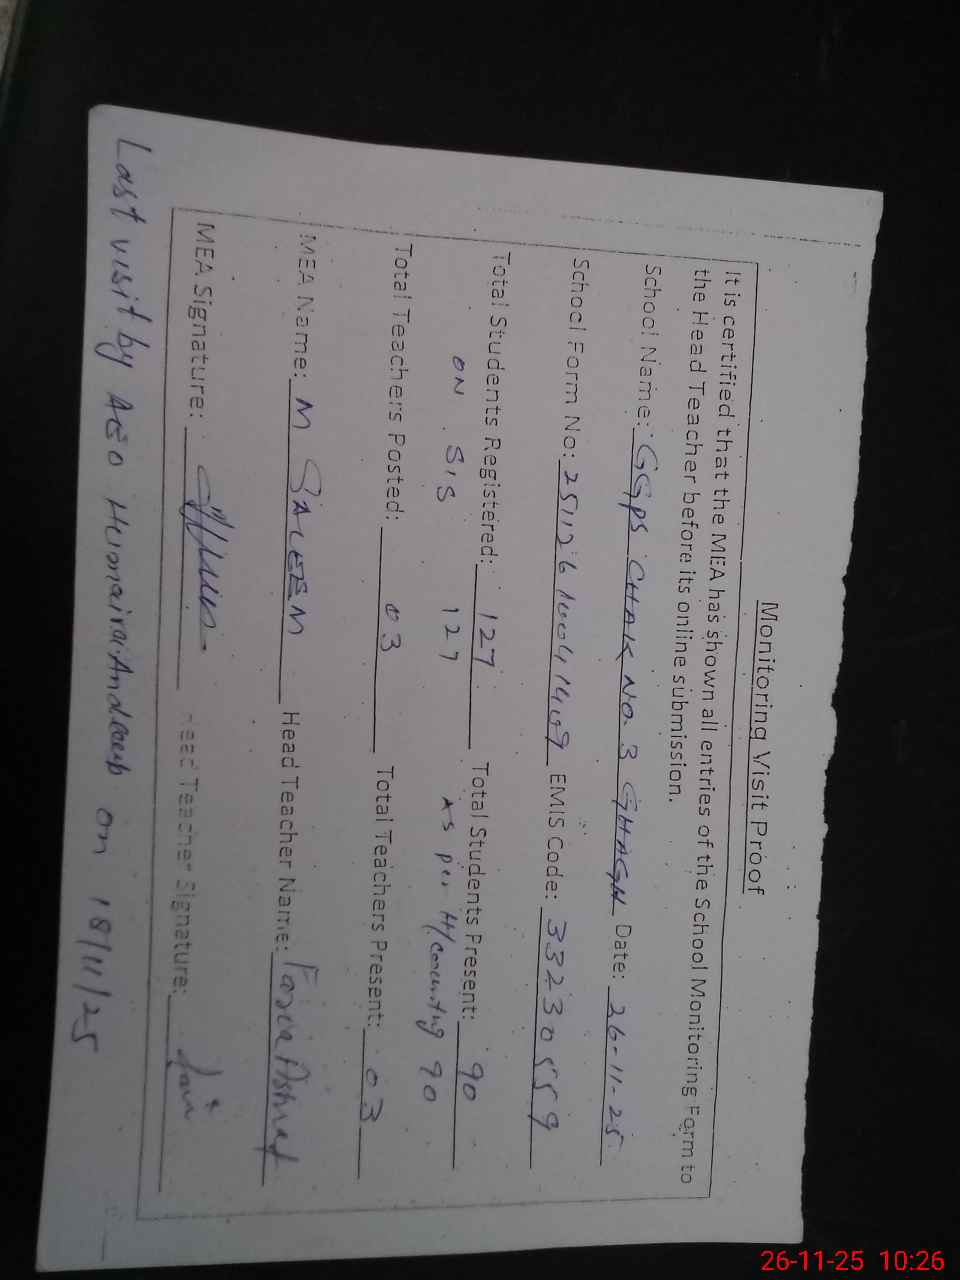 Monitoring Visit Proof
It is certified that the MEA has shown all entries of the School Monitoring Form to
the Head Teacher before its online submission.
School Name: GGPS CHAK NO. 3 GHAGH Date: 26-11-25
School Form No: 25112610041409 EMIS Code: 33230559
Total Students Registered: 127 Total Students Present: 90
ON SIS 127 As per H/counting 90
Total Teachers Posted: 03 Total Teachers Present: 03
MEA Name: M SALEEM Head Teacher Name: Fozia Ashraf
MEA Signature: Head Teacher Signature:
Last visit by AEO Humaira Andleeb on 18/11/25
26-11-25 10:26